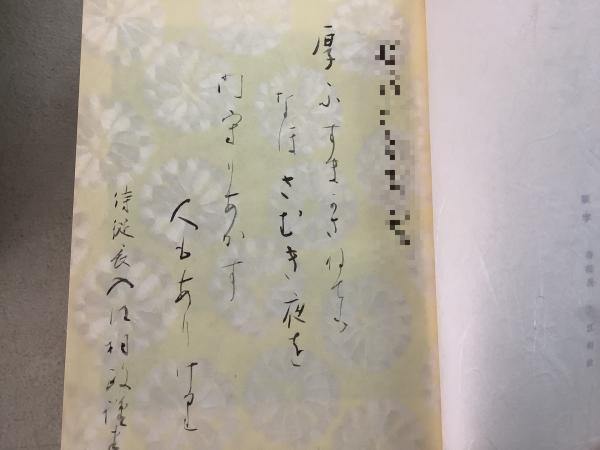 厚ふすまかさねても
なほさむき夜を
門守りあかす
人もあり
侍従長入江相政謹書